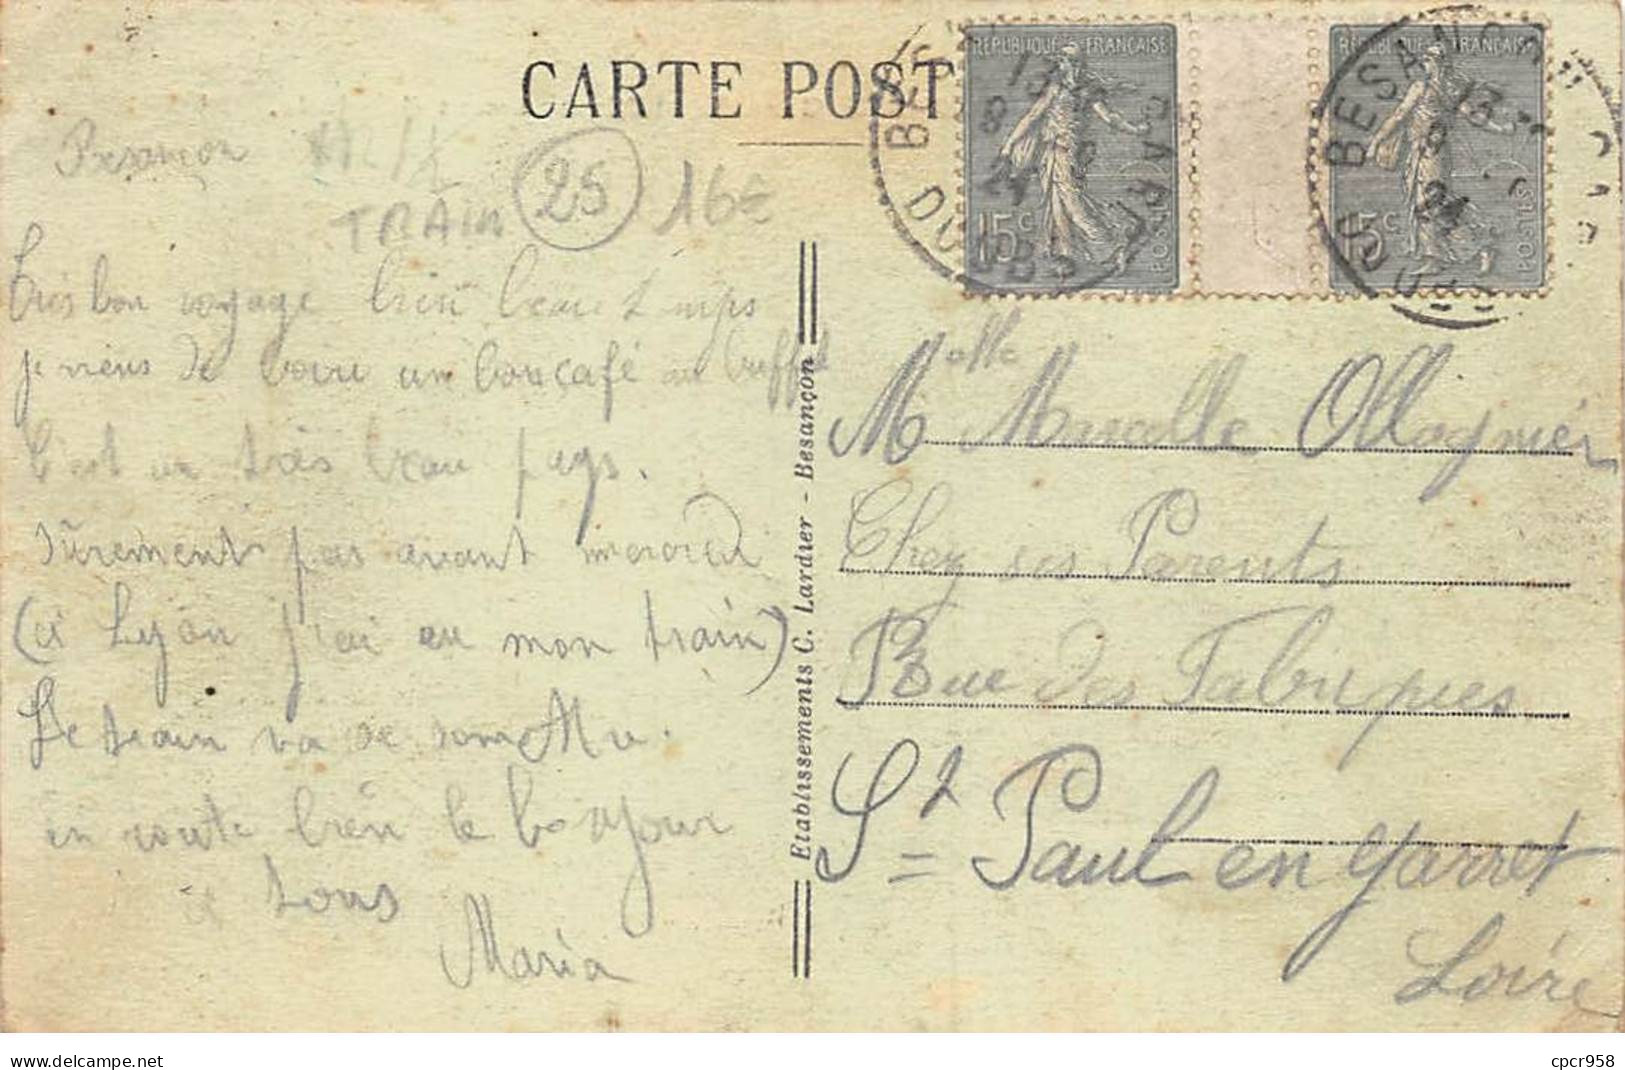 CARTE POST
REPUBLIQUE FRANÇAISE
15c
POSTES
REPUBLIQUE FRANÇAISE
15c
POSTES
BESANÇON
DOUBS
13
8
24
BESANÇON
13
24
Besancon
TRAIN
25
16€
Très bon voyage bien beau temps
je viens de boire un bon café au buffet
C'est un très beau pays.
sûrement pas avant mercredi
(à Lyon j'ai eu mon train)
Le train va se
en route bien le bonjour
à tous
Maria
Etablissements C. Lardier - Besançon
Melle Marcelle Ollagnier
Chez ses Parents
Rue des Fabriques
St Paul en Jarret
Loire
cpcr958